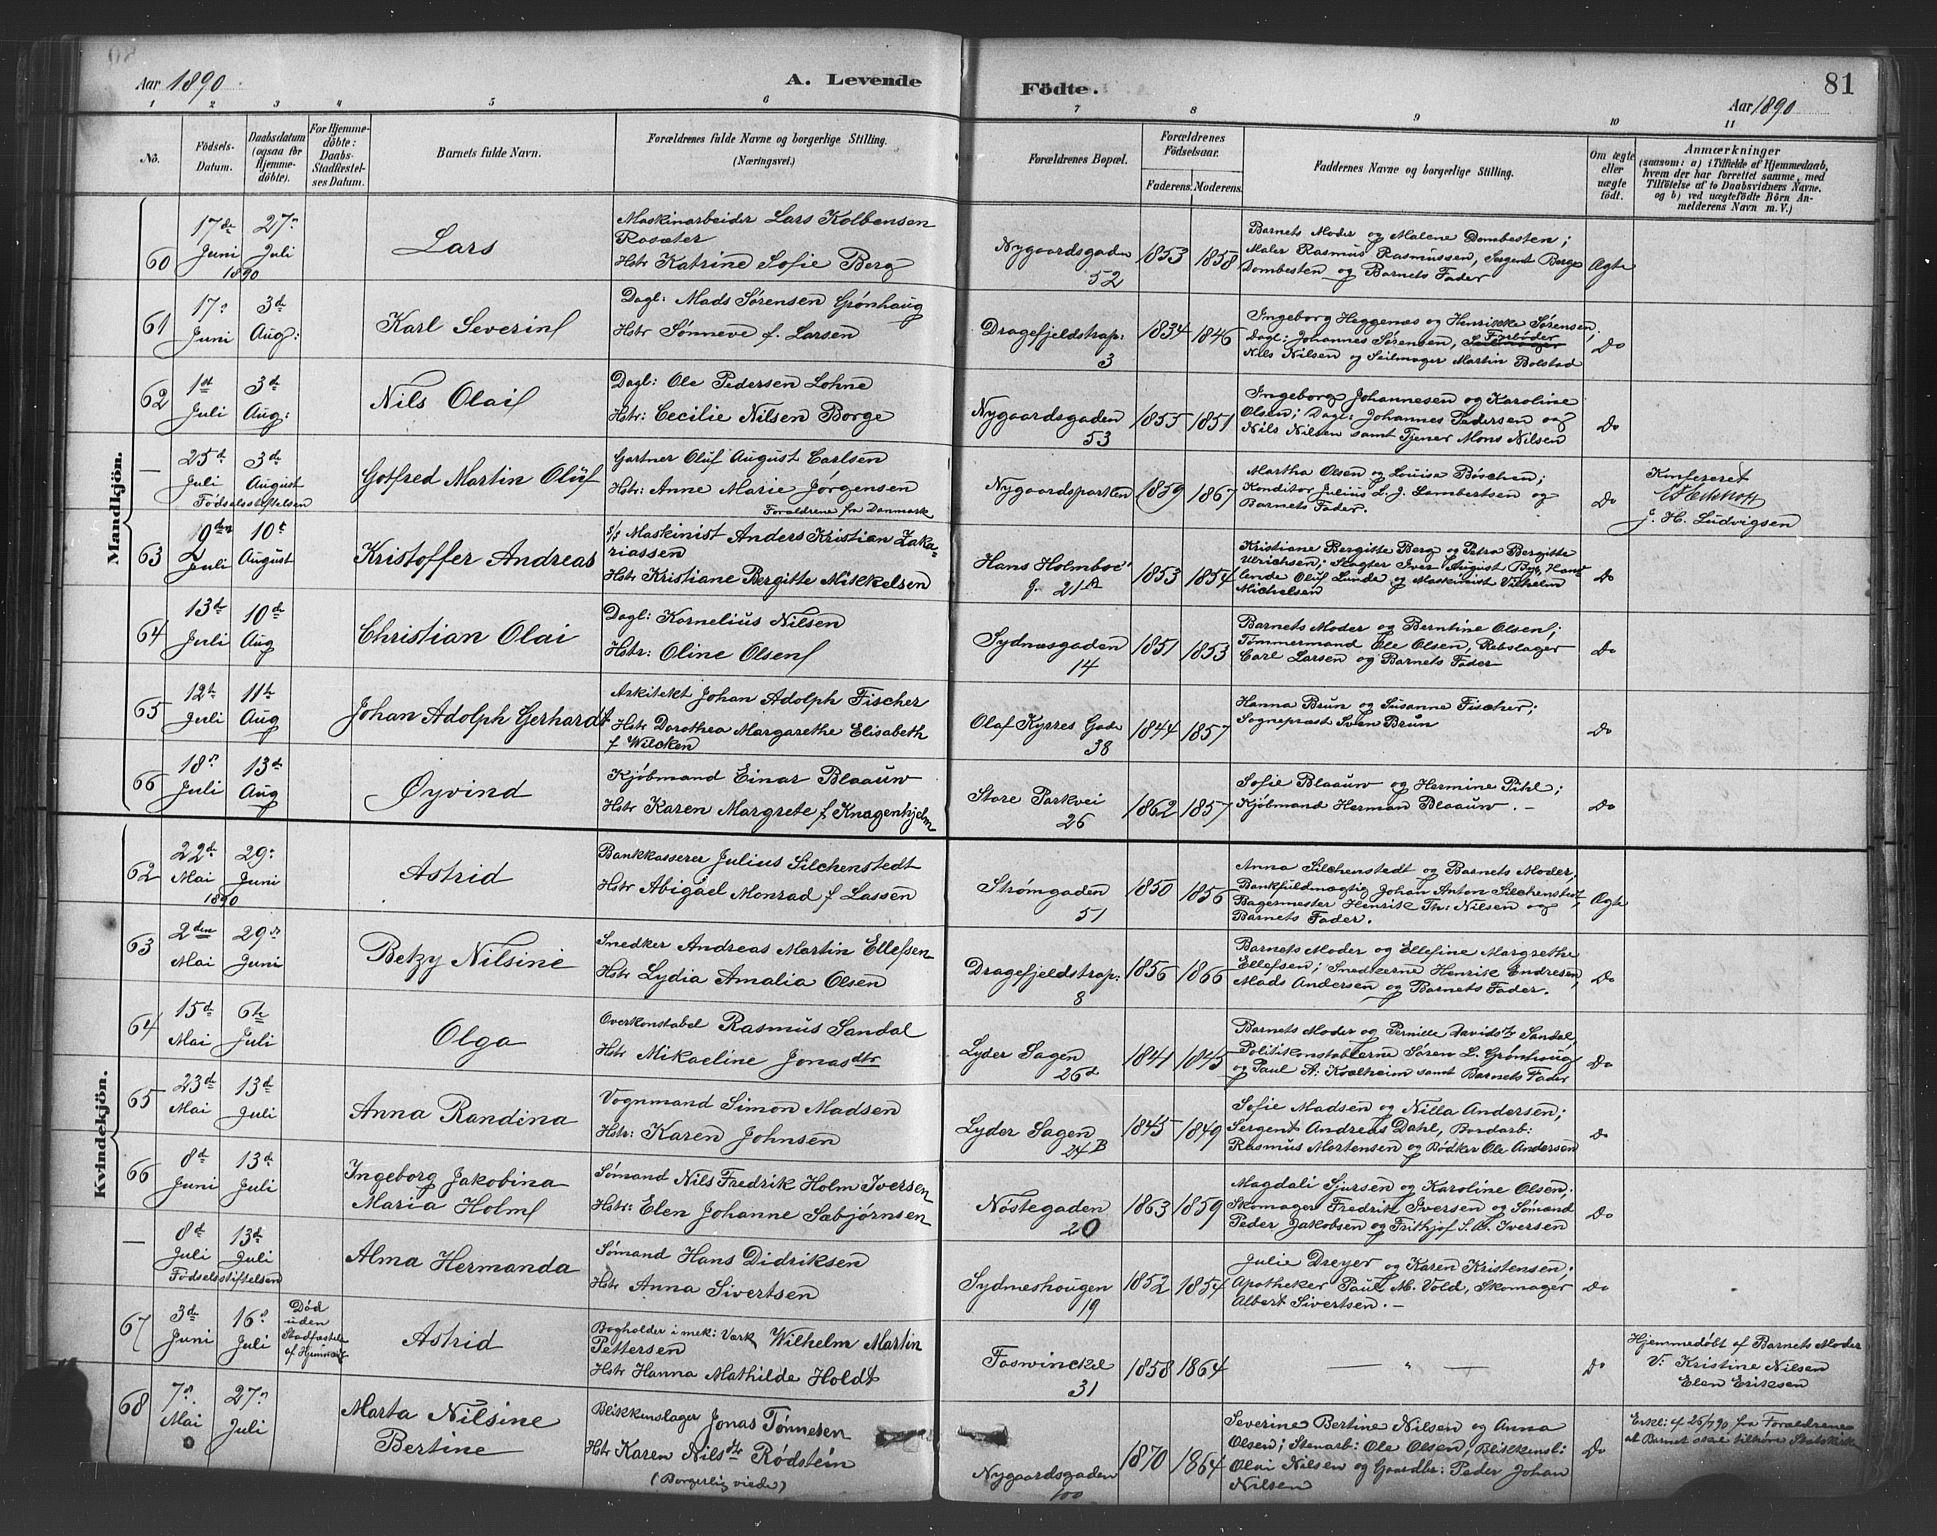 Aar 1890
A. Levende
Födte.
81
Aar 1890
1 2 3 4 5 6 7 8 9 10 11
No.
Födsels-
Datum.
Daabsdatum
(ogsaa for
Hjemme-
döbte).
For Hjemme-
döbte:
Daabs-
Stadfæstel-
ses Datum.
Barnets fulde Navn.
Forældrenes fulde Navne og borgerlige Stilling.
(Næringsvei.)
Forældrenes Bopæl.
Forældrenes
Födselsaar.
Faderens. Moderens.
Faddernes Navne og borgerlige Stilling.
Om ægte
eller
uægte
födt.
Anmærkninger
(saasom: a) i Tilfælde af Hjemmedaab,
hvem der har forrettet samme, med
Tilföielse af to Daabsvidners Navne.
og b) ved uægtefödte Börn An-
melderens Navn m. V.)
Mandkjön.
60
17de
Juni
1890
27n
Juli
Lars
Maskinarbeider Lars Kolbensen
Rosæter
Hstr Katrine Sofie Berg
Nygaardsgaden
52
1853 1858
Barnets Moder og Malene Dombesten;
Maler Rasmus Rasmussen, Sergent Berge
Dombesten og Barnets Fader
Ægte
61
17
Juni
3d
Aug:
Karl Severin
Dagl: Mads Sørensen Grønhaug
Hstr Sønneve f. Larsen
Dragefjeldstrap:
3
1834 1846
Ingeborg Heggenæs og Henrikke Sørensen;
Dagl: Johannes Sørensen, Seilmager
Nils Nilsen og Seilmager Martin Bolstad
Do
62
1st
Juli
3d
Aug:
Nils Olai
Dagl: Ole Pedersen Lohne
Hstr: Cecilie Nilsen Borge
Nygaardsgaden
53
1855 1851
Ingeborg Johannesen og Karoline
Olsen; Dagl: Johannes Pedersen og
Nils Nilsen samt Tjener Mons Nilsen
Do
—
25d
Juli
3d
August
Fødselsstiftelsen
Gotfred Martin Oluf
Gartner Oluf August Carlsen
Hstr: Anne Marie Jørgensen
Forældrene fra Danmark
Nygaardsparken
1859 1867
Martha Olsen og Louise Böschen;
Konditor Julius L. J. Lambertsen og
Barnets Fader.
Do
Konfereret
J. H. Ludvigsen
63
9de
Juli
10t
August
Kristoffer Andreas
Maskinist Anders Kristian Zaka-
riassen
Hstr Kristiane Bergitte Mikkelsen
Hans Holmboe
g. 21A
1853 1854
Kristiane Bergitte Berg og Petra Bergitte
Ulrichsen; Slagter Iver August Bye, Hand-
lende Oluf Lunde og Maskinist Vilhelm
Michelsen
Do
64
13d
Juli
10d
Aug
Christian Olai
Dagl: Kornelius Nilsen
Hstr: Oline Olsen
Sydnæsgaden
14
1851 1853
Barnets Moder og Berntine Olsen;
Tømmermand Ole Olsen, Rebslager
Carl Larsen og Barnets Fader
Do
65
12t
Juli
11te
Aug
Johan Adolph Gerhardt
Arkitekt Johan Adolph Fischer
Hstr Dorothea Margarethe Elisabeth
f Wilcken
Olaf Kyrres Gade
38
1844 1857
Hanna Brun og Susanne Fischer;
Sognepræst Sven Brun
Do
66
18n
Juli
13d
Aug
Øyvind
Kjøbmand Einar Blaauw
Hstr Karen Margrete f Knagenhjelm
Store Parkvei
26
1862 1857
Sofie Blaauw og Hermine Pihl;
Kjøbmand Herman Blaauw. —
Do
Kvindekjön.
62
22d
Mai
1890
29
Juni
Astrid
Bankkasserer Julius Silchenstedt
Hstr Abigael Monrad f Lassen
Strømgaden
51
1850 1856
Anna Silchenstedt og Barnets Moder,
Bankfuldmægtig Johan Anton Silchenstedt,
Bagermester Henrik Th: Nilsen og
Barnets Fader.
Ægte
63
2den
Mai
29de
Juni
Betzy Nilsine
Snedker Andreas Martin Ellefsen
Hstr Lydia Amalia Olsen
Dragefjeldstrap:
8
1856 1866
Barnets Moder og Ellefine Margrethe
Ellefsen; Snedkerne Henrik Endresen,
Mads Andersen og Barnets Fader.
Do
64
15d
Mai
6te
Juli
Olga
Overkonstabel Rasmus Sandal
Hstr Mikaeline Jonasdtr
Lyder Sagen
26d
1841 1845
Barnets Moder og Pernille Davidsdr Sandal,
Politikonstablerne Søren L. Grønhoug
og Paul A. Kvalheim samt Barnets Fader
Do
65
23d
Mai
13d
Juli
Anna Randina
Vognmand Simon Madsen
Hstr: Karen Johnsen
Lyder Sagen
24B
1845 1849
Sofie Madsen og Nilla Andersen;
Sergent Andreas Dahl, Bordarb:
Rasmus Mortensen og Bødker Ole Andersen
Do
66
8d
Juni
13d
Juli
Ingeborg Jakobina
Maria Holm
Sømand Nils Fredrik Holm Iversen
Hstr: Elen Johanne Sæbjørnsen
Nøstegaden
20
1863 1859
Magdali Sjursen og Karoline Olsen;
Skomager Fredrik Iversen og Sømand
Peder Jakobsen og Frithjof S. A. Iversen
Do
—
8d
Juli
13d
Juli
Fødselsstiftelsen
Alma Hermanda
Sømand Hans Didriksen
Hstr Anna Sivertsen
Sydneshougen
19
1852 1854
Julie Dreyer og Karen Kristensen;
Apotheker Paul M. Vold, Skomager
Albert Sivertsen. —
Do
67
3d
Juni
16d
Juli
Død
uden
Stadfæstelse
af Hjemmed
Astrid
Bogholder i mek: Værk Wilhelm Martin
Pettersen
Hstr Hanna Mathilde Holdt
Foswinckel
31
1858 1864
— " —
Do
Hjemmedøbt af Barnets Moder
V: Kristine Nilsen
Elen Eriksen
68
7d
Mai
27n
Juli
Marta Nilsine
Bertine
Blikkenslager Jonas Tønnesen
Hstr Karen Nilsdtr Rødstein
(Borgerlig viede)
Nygaardsgaden
100
1870 1864
Severine Bertine Nilsen og Anna
Olsen; Stenarb: Ole Olsen, Blikkensl:
Olai Nilsen og Gaardbr: Peder Johan
Nilsen
Do
Erkl: af 26/7 90 fra Forældrene
at Barnet skal tilhøre Statskirk